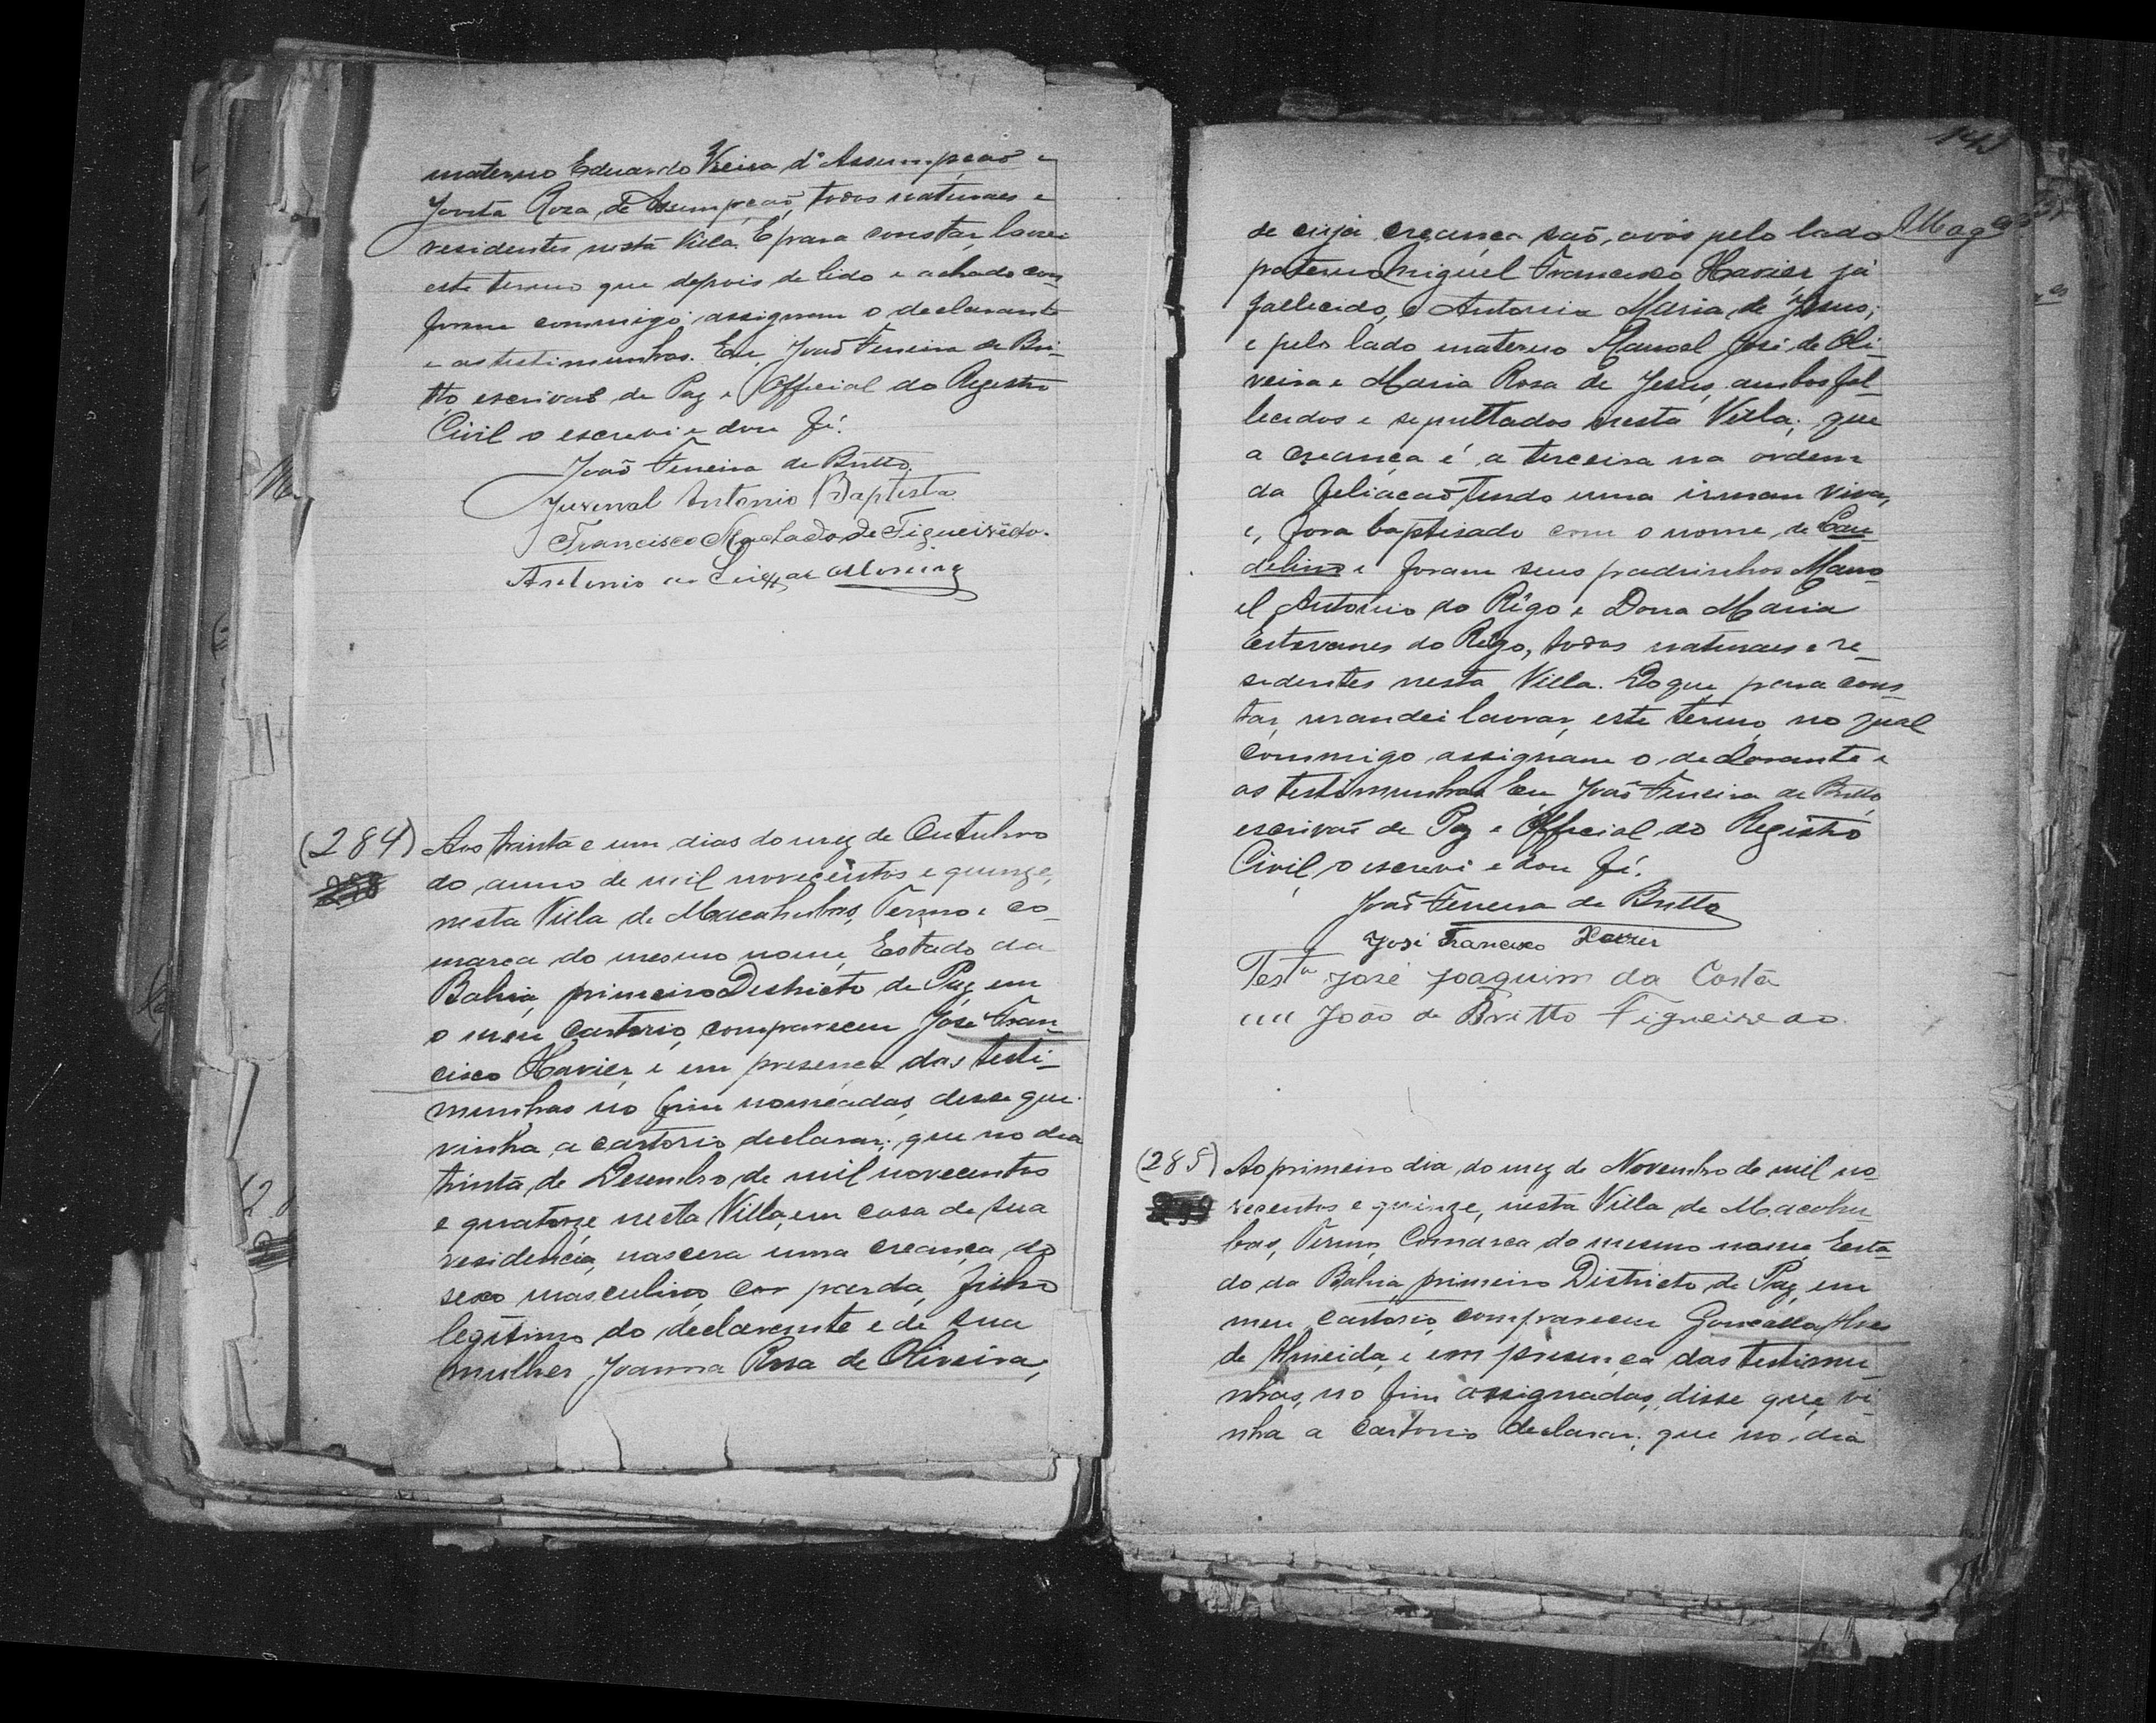 materno Eduardo Vieira d'Assumpção e
Jovita Roza de Assumpção, todos naturaes e
residentes nesta Villa. E para constar, lavrei
este termo que depois de lido e achado con-
forme commigo assignam o declarante
e as testimunhas. Eu, João Ferreira de Bri-
tto escrivão de Paz e Official do Registro
Civil o escrevi e dou fé.
João Ferreira de Britto.
Juvenal Antonio Baptista
Francisco Machado de Figueirêdo.
Antonio de
(284) Aos trinta e um dias do mez de Outubro
do anno de mil novecentos e quinze,
nesta Villa de Macahubas, Termo e co-
marca do mesmo nome, Estado da
Bahia, primeiro Destricto de Paz, em
o meu cartorio, compareceu José Fran-
cisco Xavier, e em presença das testi-
munhas no fim nomeadas, disse que
vinha a cartorio declarar; que no dia
trinta de Desembro de mil novecentos
e quatorze, nesta Villa, em casa de sua
residencia, nascera uma creança, do
sexo masculino, cor parda, filho
legitimo do declarante e de sua
mulher Joanna Rosa de Oliveira;
de cuja creança são, avós pelo lado
paterno Miguel Francisco Xavier, já
fallecido, e Antonia Maria de Jesus;
e pelo lado materno Manoel José de Oli-
veira e Maria Rosa de Jesus, ambos fal-
lecidos e sepultados nesta Villa; que
a creança é a terceira na ordem
da filiacão, tendo uma irman viva,
e, fora baptisado com o nome, de Can-
delino e foram seus padrinhos Mano-
el Antonio do Rêgo e Dona Maria
Estevanes do Rêgo, todos naturaes e re-
sedentes nesta Villa. Do que para cons-
tar, mandei lavrar, este termo, no qual
commigo assignam o declarante e
as testimunhas. Eu João Ferreira de Britto
escrivão de Paz e Official do Registro
Civil, o escrevi e dou fé.
João Ferreira de Britto
José Francisco Xavier
Testa José Joaquim da Costa
" João de Britto Figueiredo
(285) Ao primeiro dia do mez de Novembro de mil no-
vecentos e quinze, nesta Villa de Macahu-
bas, Termo, Comarca do mesmo nome, Esta-
do da Bahia, primeiro Districto de Paz, em
meu cartorio, compareceu Goncallo Alves
de Almeida, e em presença das testimu-
nhas, no fim assignadas, disse que, vi-
nha a cartorio declarar; que no dia